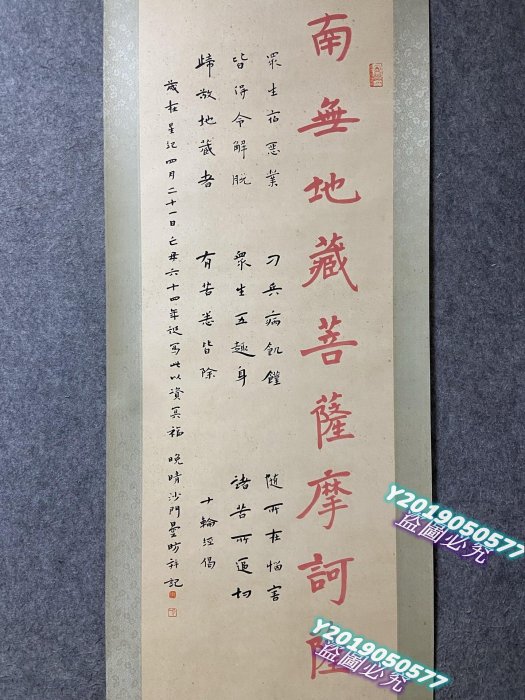 南無地藏菩薩摩訶薩
眾生宿惡業 刀兵病飢饉 隨所在惱害
皆得令解脫 眾生五趣身 諸苦所逼切
歸敬地藏者 有苦悉皆除 十輪經偈
歲在星紀四月二十一日亡母六十四年誕寫此以資冥福 晚晴沙門曇昉并記
Y2019050577
盜圖必究
Y2019050577
盜圖必究